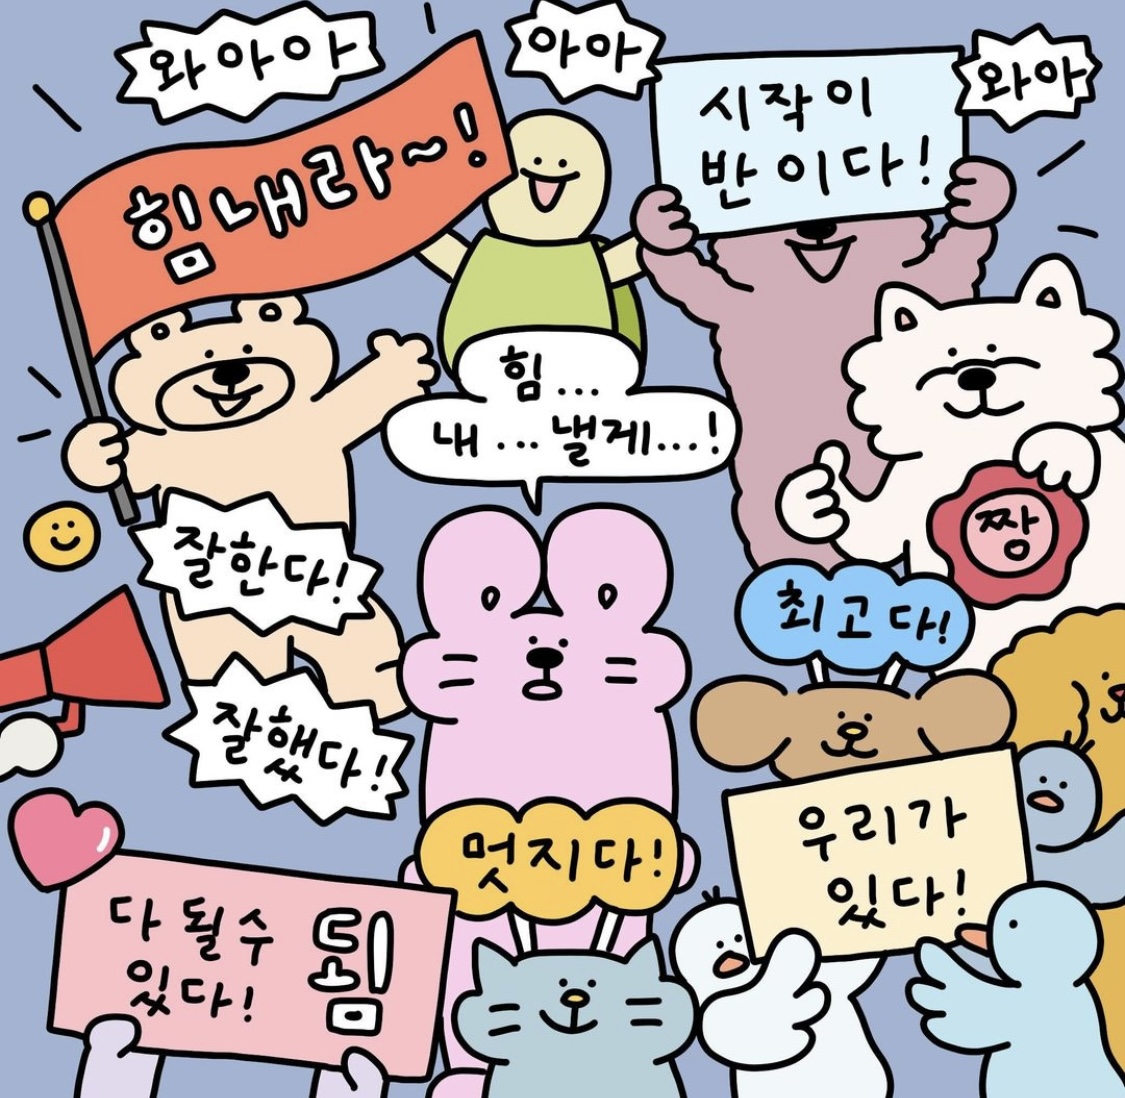 와아아
아아
와아
힘내라~!
시작이
반이다!
힘...
내...낼게...!
짱
잘한다!
최고다!
잘했다!
멋지다!
우리가
있다!
다 될수
있다!
됨